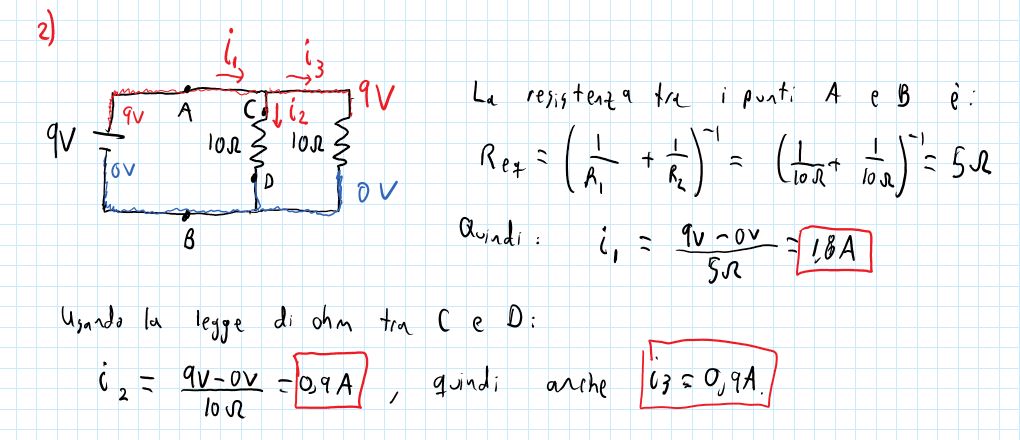 2)
i₁ i₃
9V A C i₂ 9V
9V 10Ω 10Ω
0V D 0V
B
La resistenza tra i punti A e B è:
R_eq = (1/R₁ + 1/R₂)⁻¹ = (1/10Ω + 1/10Ω)⁻¹ = 5Ω
Quindi: i₁ = (9V-0V)/5Ω = 1,8A
Usando la legge di ohm tra C e D:
i₂ = (9V-0V)/10Ω = 0,9A, quindi anche i₃ = 0,9A.